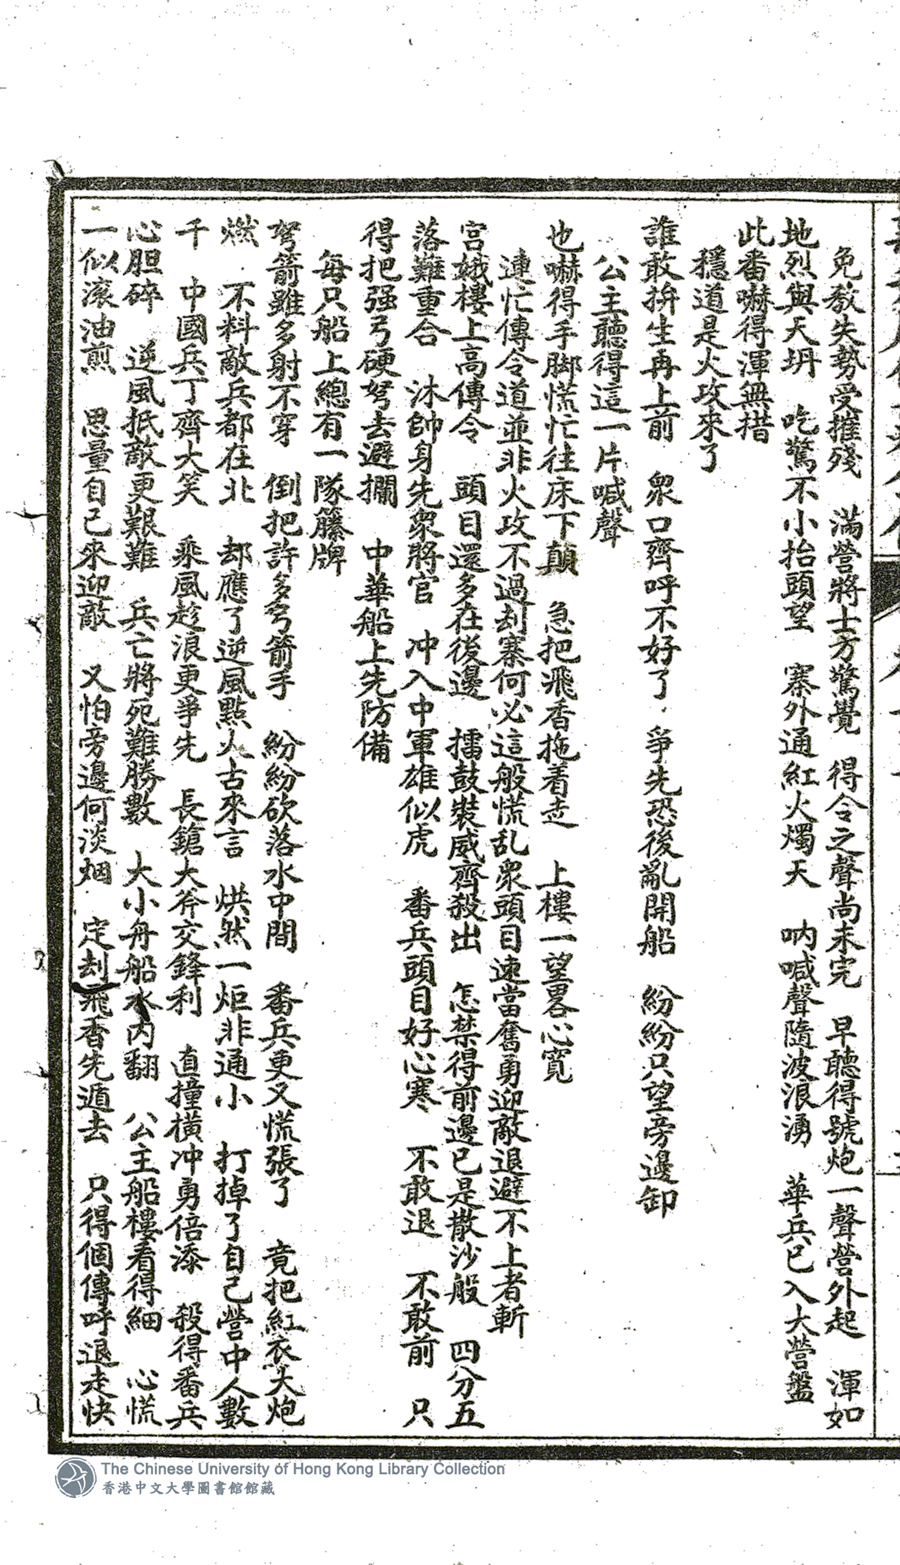 免教失勢受摧殘　滿營將士方驚覺　得令之聲尚未完　早聽得號炮一聲營外起　渾如
地烈與天坍　吃驚不小抬頭望　寨外通紅火燭天　吶喊聲隨波浪湧　華兵已入大營盤
此番嚇得渾無措
穩道是火攻來了
誰敢拚生再上前　衆口齊呼不好了　爭先恐後亂開船　紛紛只望旁邊卸
公主聽得這一片喊聲
也嚇得手脚慌忙往床下顛　急把飛香拖着走　上樓一望畧心寬
連忙傳令道並非火攻不過刦寨何必這般慌乱衆頭目速當奮勇迎敵退避不上者斬
宫娥樓上高傳令　頭目還多在後邊　擂鼓裝威齊殺出　怎禁得前邊已是散沙般　四分五
落難重合　沐帥身先衆將官　冲入中軍雄似虎　番兵頭目好心寒　不敢退　不敢前　只
得把强弓硬弩去避攔　中華船上先防備
每只船上總有一隊籐牌
弩箭雖多射不穿　倒把許多弓箭手　紛紛砍落水中間　番兵更又慌張了　竟把紅衣大炮
燃　不料敵兵都在北　却應了逆風點人古來言　烘然一炬非通小　打掉了自己營中人數
千　中國兵丁齊大笑　乘風趁浪更爭先　長鎗大斧交鋒利　直撞横冲勇倍添　殺得番兵
心胆碎　逆風抵敵更艱難　兵亡將死難勝數　大小舟船水内翻　公主船樓看得細　心慌
一似滚油煎　思量自己來迎敵　又怕旁邊何淡烟　定刦飛香先遁去　只得個傳呼退走快
The Chinese University of Hong Kong Library Collection
香港中文大學圖書館館藏